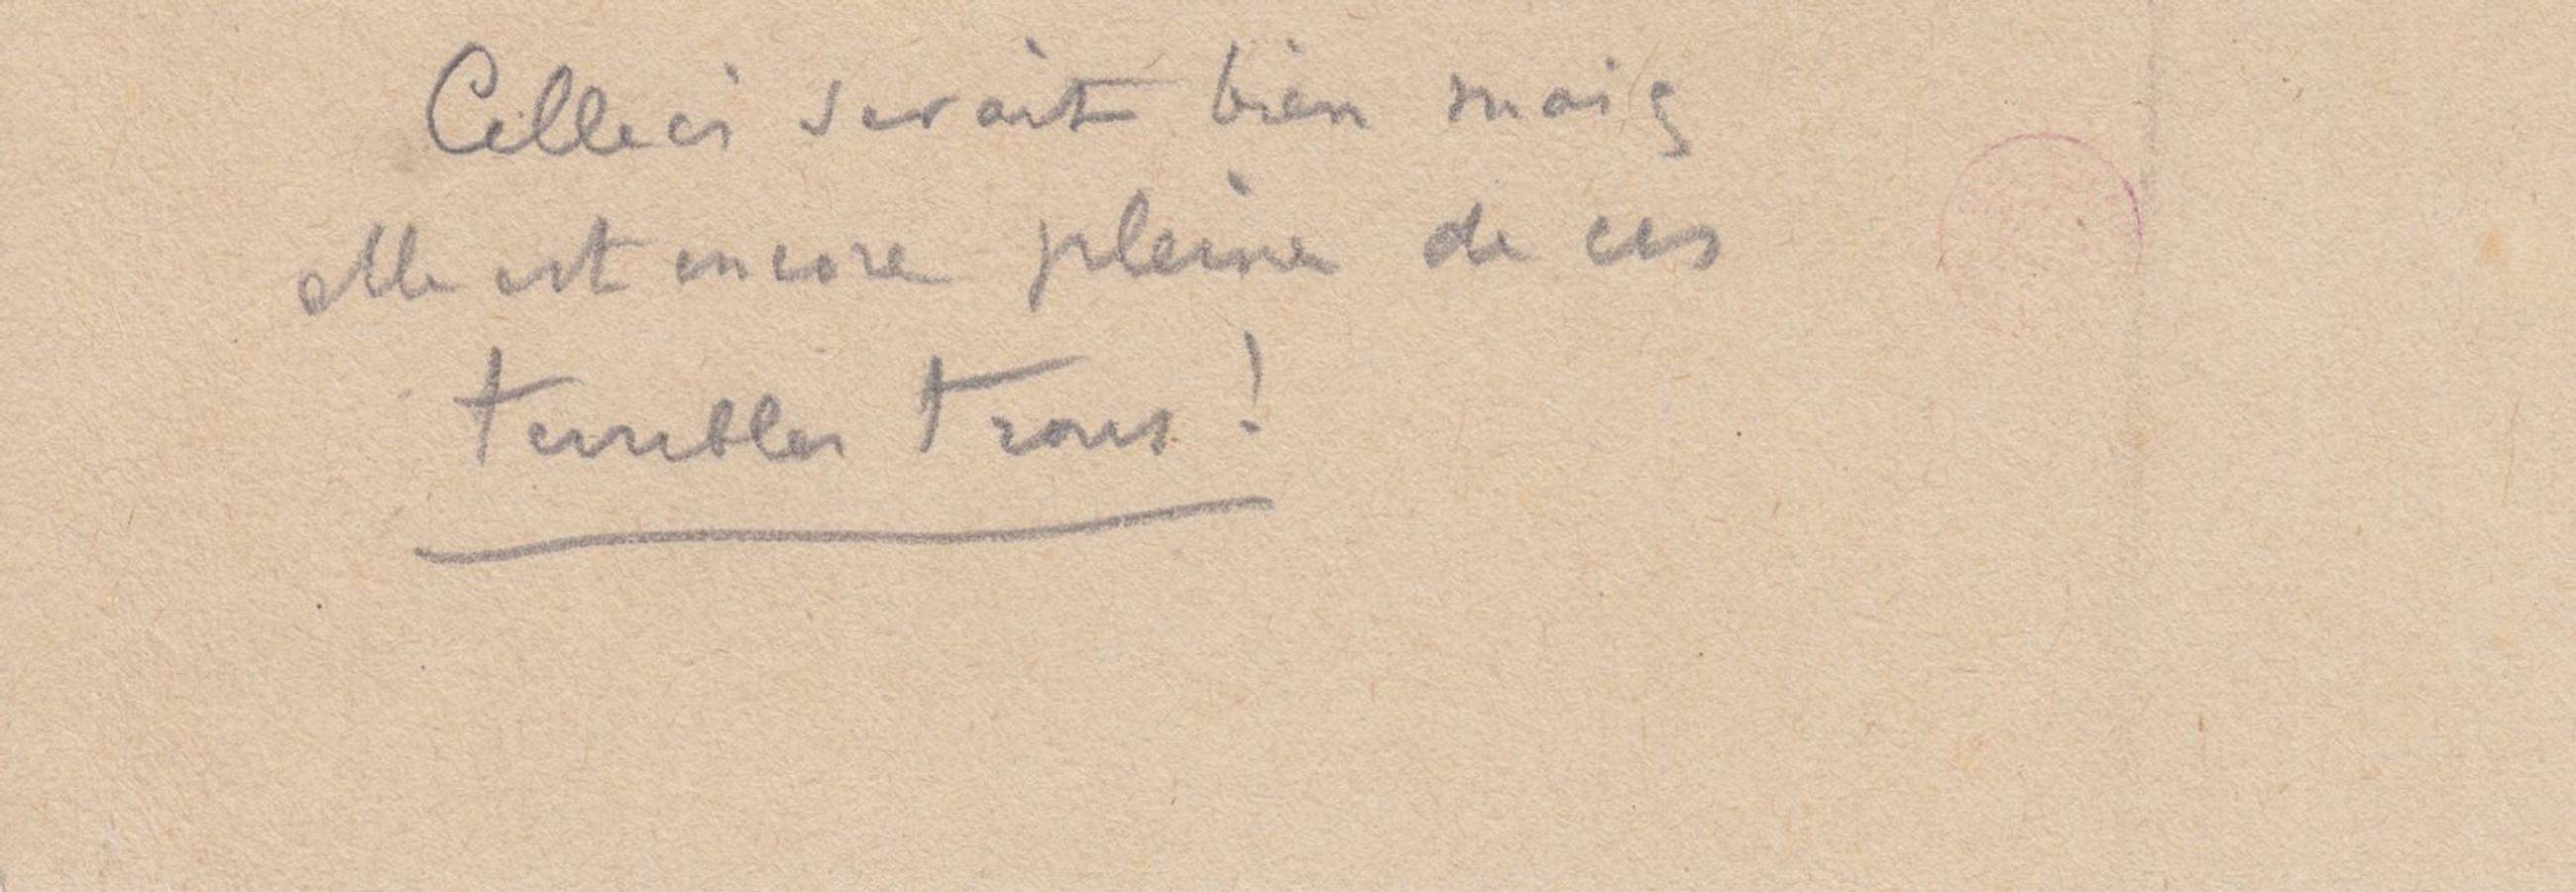 Celleci serait bien mais
elle est encore pleine de ces
terribles trous !